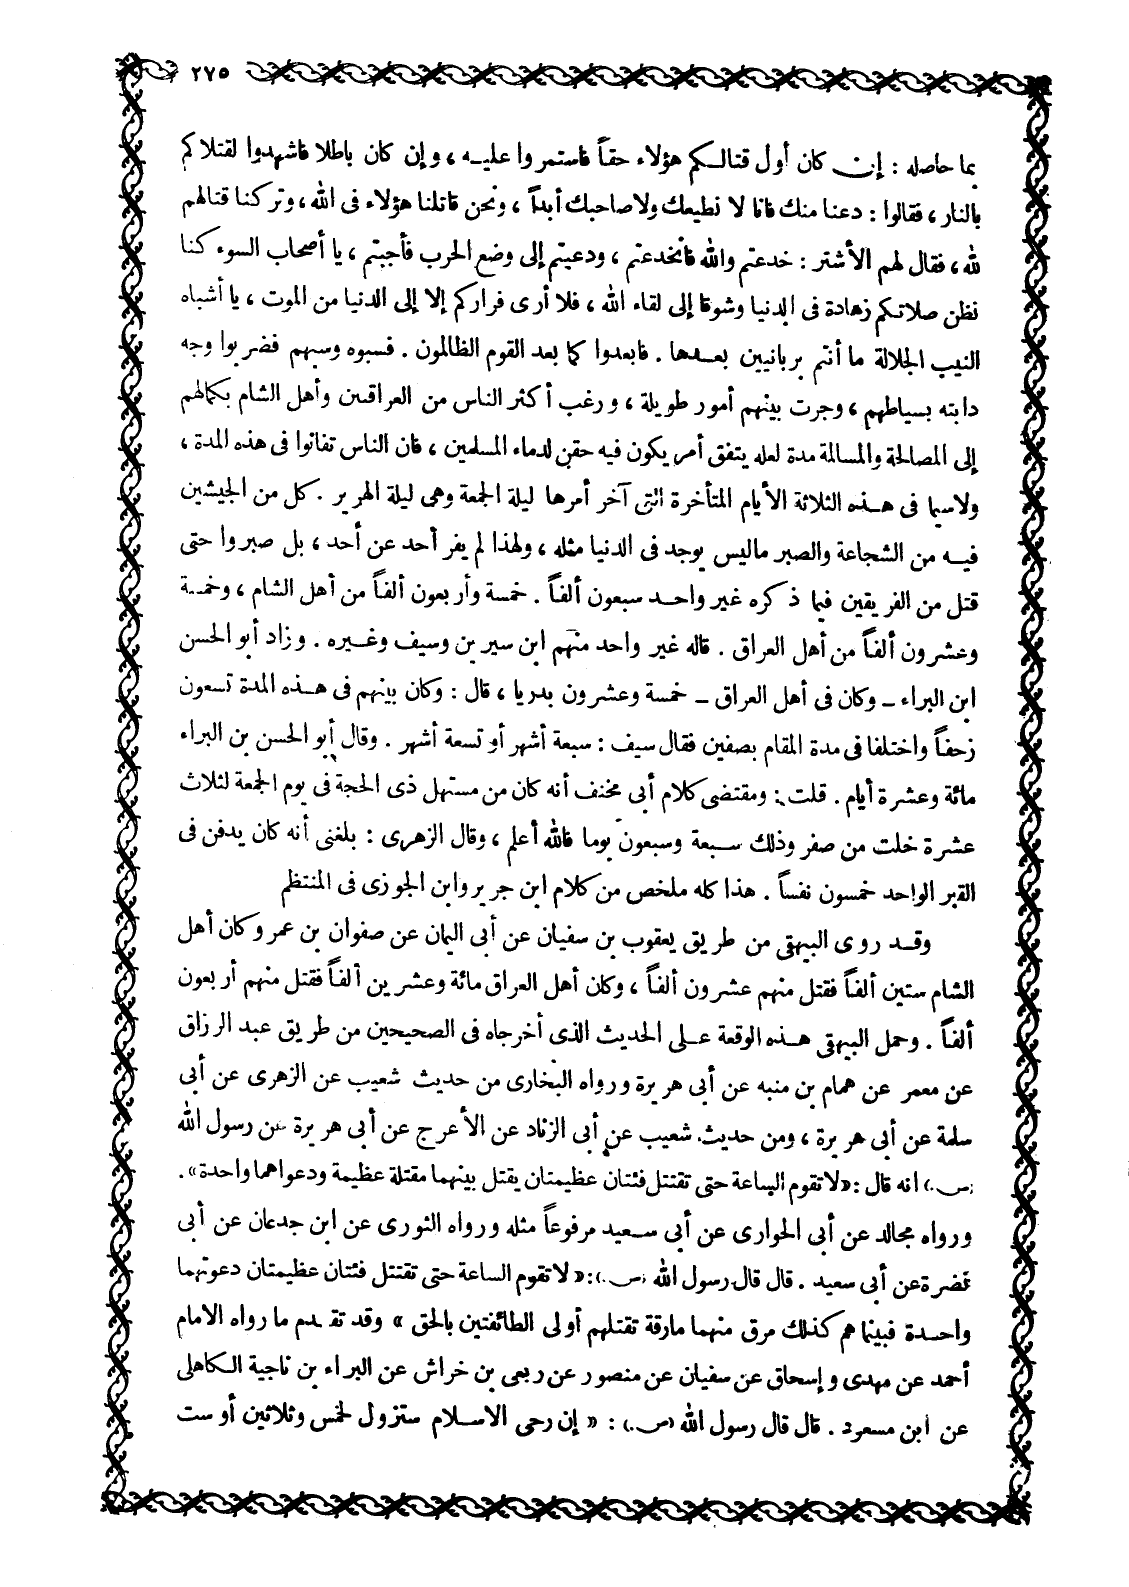 ٢٧٥
بما حاصله : إن كان أول قتالكم هؤلاء حقاً فاستمروا عليه ، وإن كان باطلا فاشهدوا لقتلاكم
بالنار ، فقالوا : دعنا منك فانا لا نطيعك ولا صاحبك أبداً ، ونحن قاتلنا هؤلاء فى الله ، وتركنا قتالهم
لله ، فقال لهم الأشتر : خدعتم والله فانخدعتم ، ودعيتم إلى وضع الحرب فأجبتم ، يا أصحاب السوء كنا
نظن صلاتكم زهادة فى الدنيا وشوقا إلى لقاء الله ، فلا أرى فراركم إلا إلى الدنيا من الموت ، يا أشباه
النيب الجلالة ما أنتم بربانيين بعدها . فابعدوا كما بعد القوم الظالمون . فسبوه وسبهم فضربوا وجه
دابته بسياطهم ، وجرت بينهم أمور طويلة ، ورغب أكثر الناس من العراقيين وأهل الشام بكمالهم
إلى المصالحة والمسالمة مدة لعله يتفق أمر يكون فيه حقن لدماء المسلمين ، فان الناس تفانوا فى هذه المدة ،
ولاسيما فى هذه الثلاثة الأيام المتأخرة التى آخر أمرها ليلة الجمعة وهى ليلة الهرير . كل من الجيشين
فيه من الشجاعة والصبر ماليس يوجد فى الدنيا مثله ، ولهذا لم يفر أحد عن أحد ، بل صبروا حتى
قتل من الفريقين فيما ذكره غير واحد سبعون ألفاً . خمسة وأربعون ألفاً من أهل الشام ، وخمسة
وعشرون ألفاً من أهل العراق . قاله غير واحد منهم ابن سيرين وسيف وغيره . وزاد أبو الحسن
ابن البراء ــ وكان فى أهل العراق ــ خمسة وعشرون بدريا ، قال : وكان بينهم فى هذه المدة تسعون
زحفاً واختلفا فى مدة المقام بصفين فقال سيف : سبعة أشهر أو تسعة أشهر . وقال أبو الحسن بن البراء
مائة وعشرة أيام . قلت : ومقتضى كلام أبى مخنف أنه كان من مستهل ذى الحجة فى يوم الجمعة لثلاث
عشرة خلت من صفر وذلك سبعة وسبعون يوما فالله أعلم ، وقال الزهرى : بلغنى أنه كان يدفن فى
القبر الواحد خمسون نفساً . هذا كله ملخص من كلام ابن جرير وابن الجوزى فى المنتظم
وقد روى البيهقى من طريق يعقوب بن سفيان عن أبى اليمان عن صفوان بن عمر وكان أهل
الشام ستين ألفاً فقتل منهم عشرون ألفاً ، وكان أهل العراق مائة وعشرين ألفاً فقتل منهم أربعون
ألفاً . وحمل البيهقى هذه الوقعة على الحديث الذى أخرجاه فى الصحيحين من طريق عبد الرزاق
عن معمر عن همام بن منبه عن أبى هريرة ورواه البخارى من حديث شعيب عن الزهرى عن أبى
سلمة عن أبى هريرة ، ومن حديث شعيب عن أبى الزناد عن الأعرج عن أبى هريرة عن رسول الله
(ص) انه قال : «لا تقوم الساعة حتى تقتتل فئتان عظيمتان يقتل بينهما مقتلة عظيمة ودعواهما واحدة» .
ورواه مجالد عن أبى الحوارى عن أبى سعيد مرفوعاً مثله ورواه الثورى عن ابن جدعان عن أبى
نضرة عن أبى سعيد . قال قال رسول الله (ص) : «لا تقوم الساعة حتى تقتتل فئتان عظيمتان دعوتهما
واحدة فبينما هم كذلك مرق منهما مارقة تقتلهم أولى الطائفتين بالحق » وقد تقدم ما رواه الامام
أحمد عن مهدى وإسحاق عن سفيان عن منصور عن ربعى بن خراش عن البراء بن ناجية الكاهلى
عن ابن مسعود . قال قال رسول الله (ص) : « إن رحى الاسلام ستزول لخمس وثلاثين أو ست